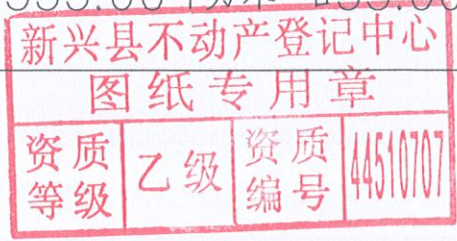 新兴县不动产登记中心
图纸专用章
资质等级 乙级 资质编号 44510707